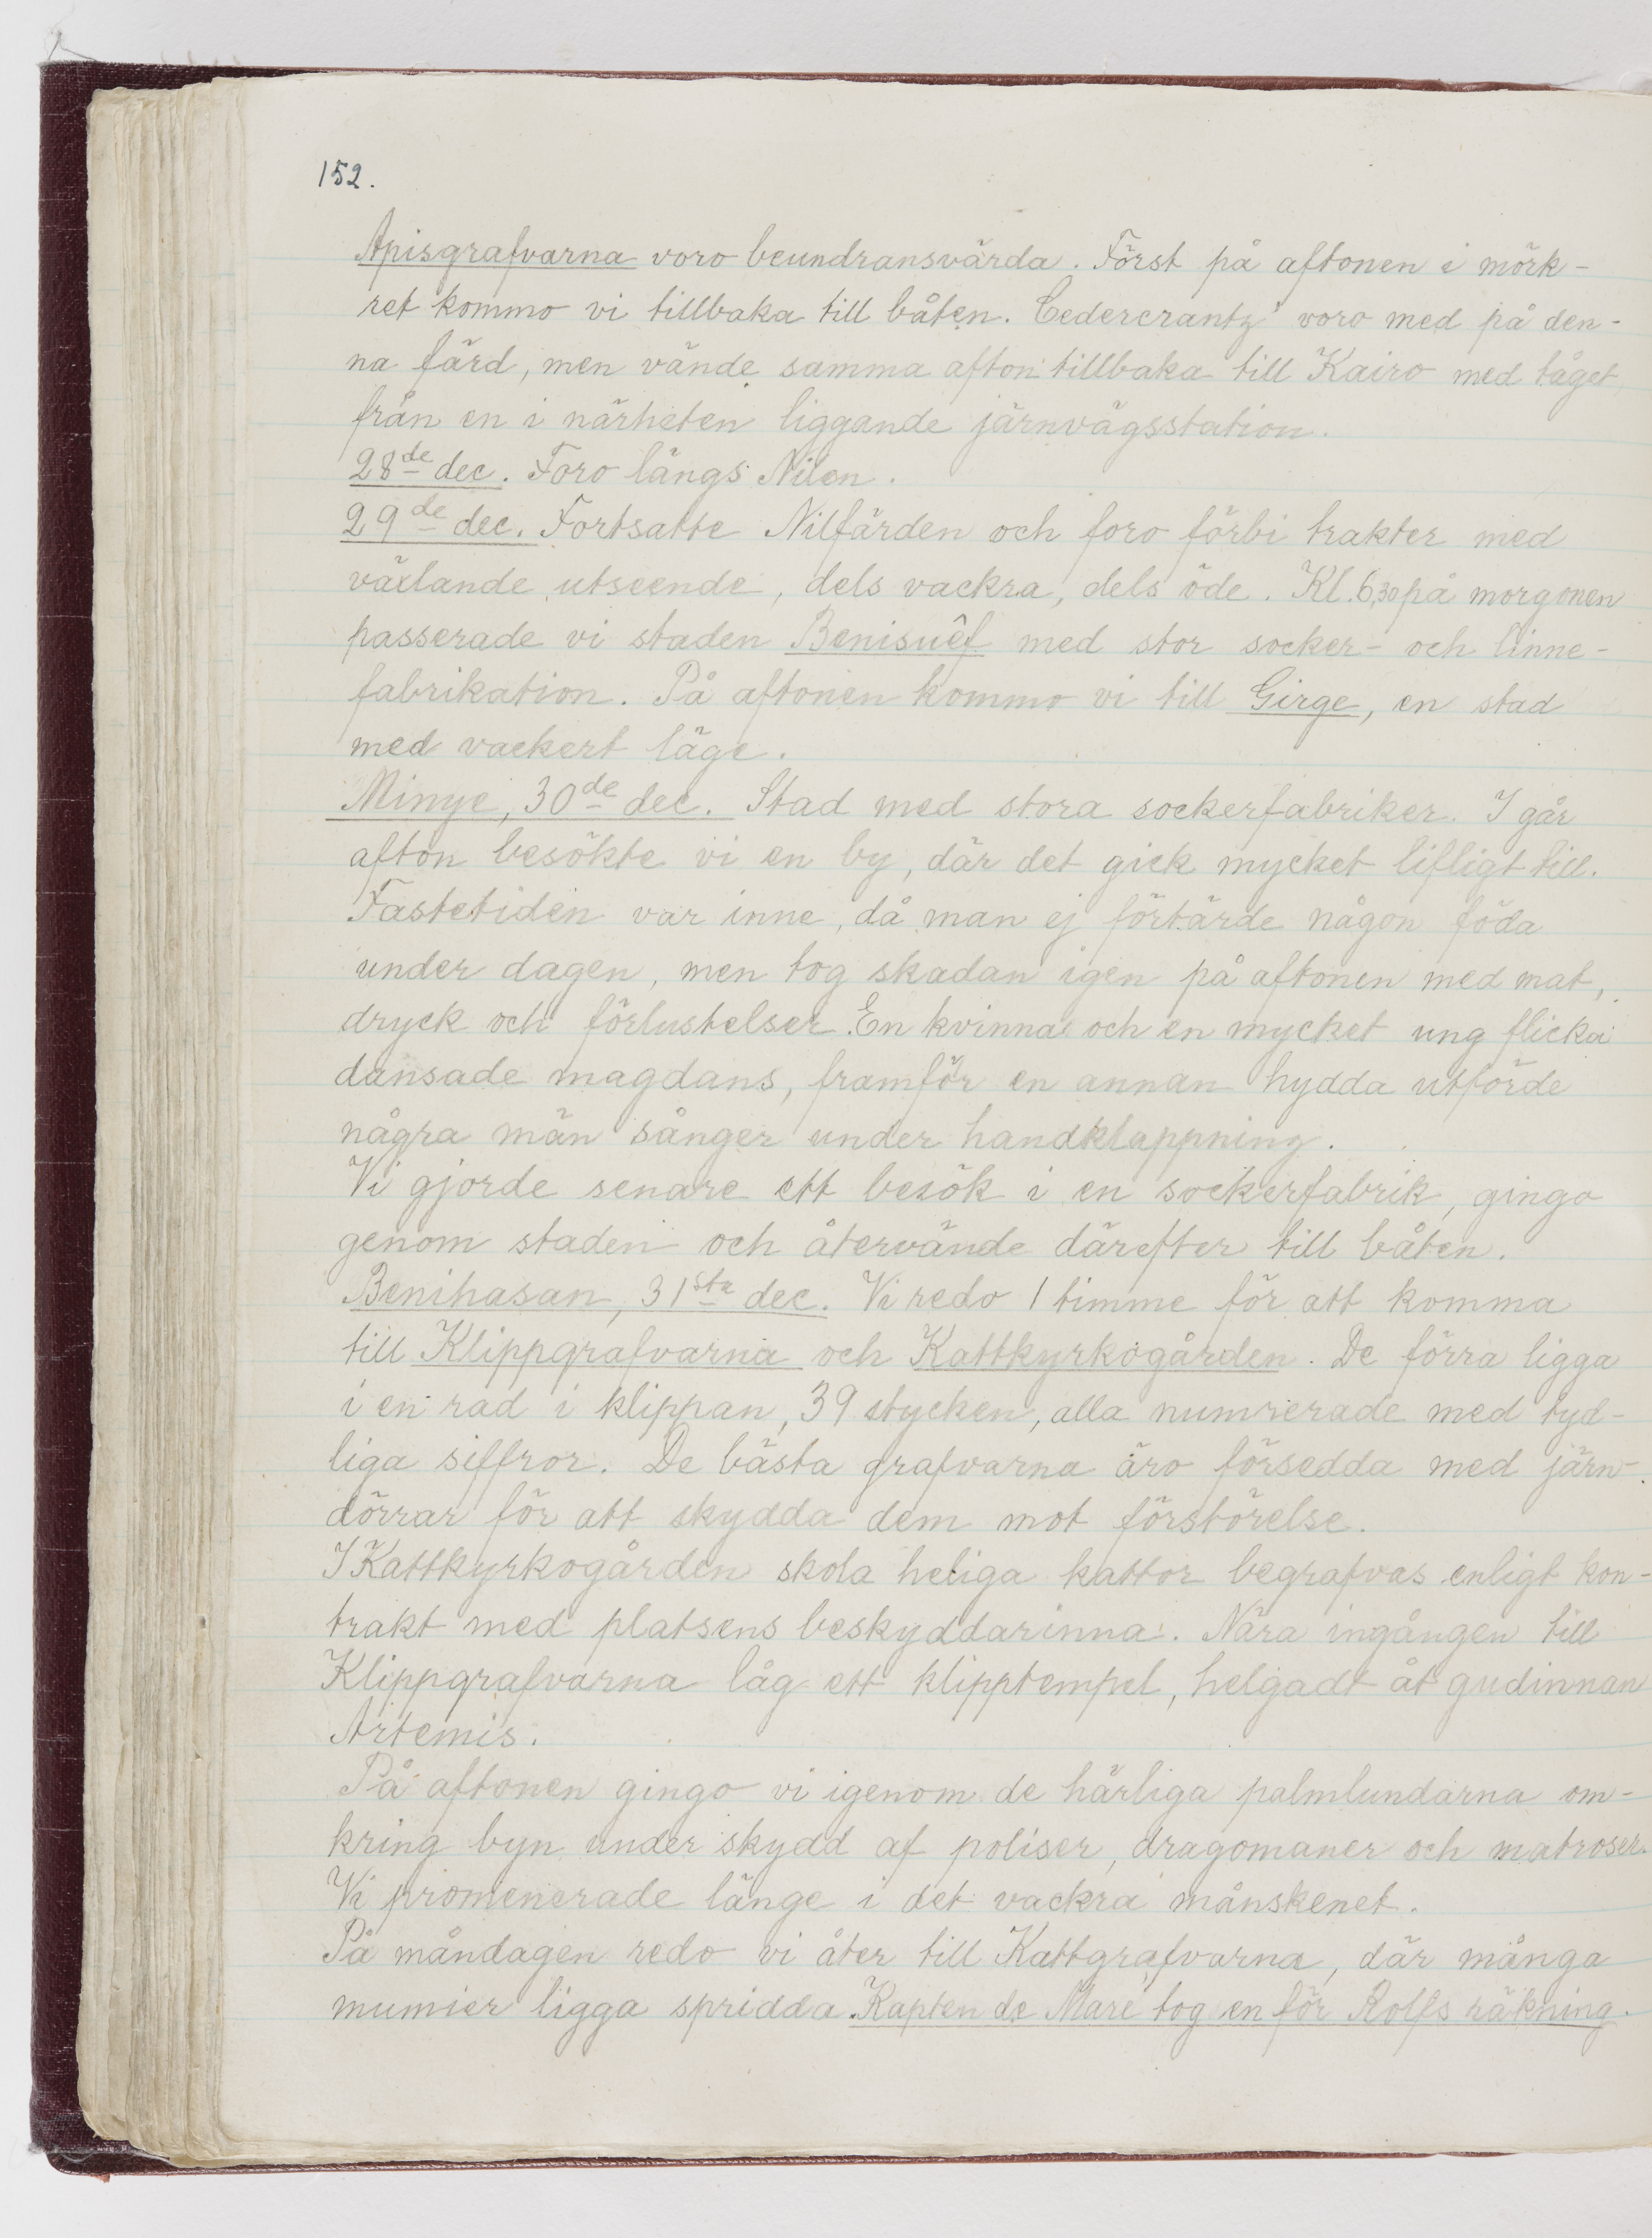 152.
Apisgrafvarna voro beundransvärda. Först på aftonen i mörk-
ret kommo vi tillbaka till båten. Cedercrantz' voro med på den-
na färd, men vände samma afton tillbaka till Kairo med tåget
från en i närheten liggande järnvägsstation.
28de dec. Foro längs Nilen.
29de dec. Fortsatte Nilfärden och foro förbi trakter med
växlande utseende, dels vackra, dels öde. Kl. 6,30 på morgonen
passerade vi staden Benisuêf med stor socker- och linne-
fabrikation. På aftonen kommo vi till Girge, en stad
med vackert läge.
Minye, 30de dec. Stad med stora sockerfabriker. I går
afton besökte vi en by, där det gick mycket lifligt till.
Fastetiden var inne, då man ej förtärde någon föda
under dagen, men tog skadan igen på aftonen med mat,
dryck och förlustelser. En kvinna och en mycket ung flicka
dansade magdans, framför en annan hydda utförde
några män sånger under handklappning.
Vi gjorde senare ett besök i en sockerfabrik, gingo
genom staden och återvände därefter till båten.
Benihasan, 31sta dec. Vi redo 1 timme för att komma
till Klippgrafvarna och Kattkyrkogården. De förra ligga
i en rad i klippan, 39 stycken, alla numrerade med tyd-
liga siffror. De bästa grafvarna äro försedda med järn-
dörrar för att skydda dem mot förstörelse.
I Kattkyrkogården skola heliga kattor begrafvas enligt kon-
trakt med platsens beskyddarinna. Nära ingången till
Klippgrafvarna låg ett klipptempel, helgadt åt gudinnan
Artemis.
På aftonen gingo vi igenom de härliga palmlundarna om-
kring byn under skydd af poliser, dragomaner och matroser.
Vi promenerade länge i det vackra månskenet.
På måndagen redo vi åter till Kattgrafvarna, där många
mumier ligga spridda. Kapten de Maré tog en för Rolfs räkning.